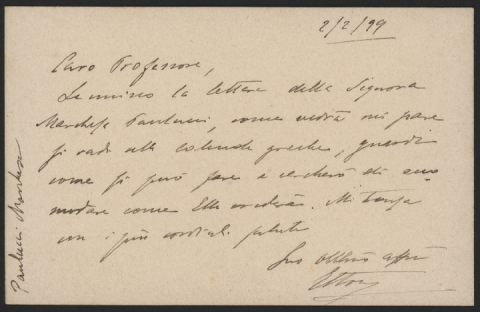 2/2/99
Caro Professore,
Le unisco la lettera della Signora
Marchesa Paulucci, come vedrà mi pare
si vada alle calende greche, quindi
come si può fare e cercherò di acco
modare come Ella crederà. Mi tenga
con i più cordiali saluti
Suo affmo
Paulucci Marchesa